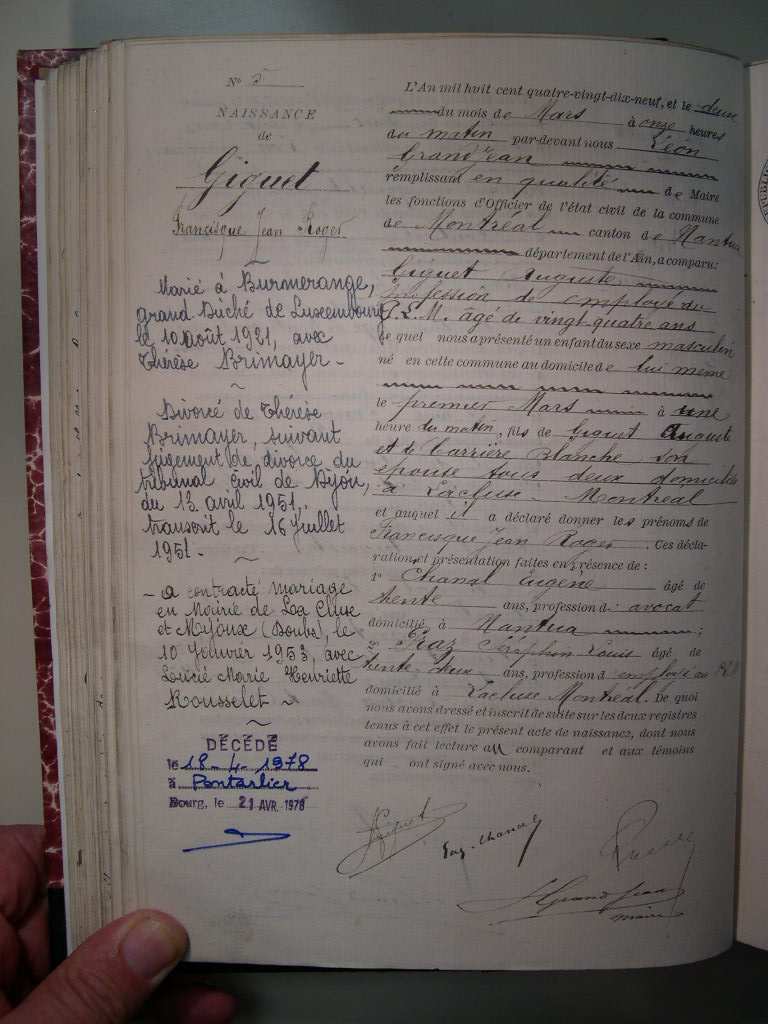 N° 5
NAISSANCE
de
Giguet
Francisque Jean Roger
Marié à Burmerange,
grand Duché de Luxembourg
le 10 août 1921, avec
Thérèse Brimayer -
~
Divorcé de Thérèse
Brimayer, suivant
jugement de divorce du
tribunal civil de Dijon,
du 13 avril 1951,
transcrit le 16 juillet
1951 -
~
- a contracté mariage
en Mairie de La Cluse
et Mijoux (Doubs), le
10 Janvier 1953, avec
Lucie Marie Henriette
Rousselet -
~
DÉCÉDÉ
le 18-4-1978
à Pontarlier
Bourg, le 21 AVR. 1978
L'An mil huit cent quatre-vingt-dix-neuf, et le deux
du mois de Mars à onze heures
du matin par-devant nous Léon
Grandjean
remplissant en qualité de Maire
les fonctions d'Officier de l'état civil de la commune
de Montréal canton de Nantua
département de l'Ain, a comparu:
Giguet Auguste,
profession de employé du
P.L.M. âgé de vingt-quatre ans
lequel nous a présenté un enfant du sexe masculin
né en cette commune au domicile de lui même
le premier Mars à une
heure du matin, fils de Giguet Auguste
et de Carrière Blanche son
épouse tous deux domiciliés
à Lacluse - Montréal
et auquel il a déclaré donner les prénoms de
Francisque Jean Roger. Ces décla-
ration et présentation faites en présence de :
1° Chanal Eugène âgé de
trente ans, profession d: avocat
domicilié à Nantua ;
2° Séraphin Louis âgé de
trente-deux ans, profession d employé au P.L.M
domicilié à Lacluse Montréal. De quoi
nous avons dressé et inscrit de suite sur les deux registres
tenus à cet effet le présent acte de naissance, dont nous
avons fait lecture au comparant et aux témoins
qui ont signé avec nous.
Giguet
Eug. Chanal
L Grandjean
maire